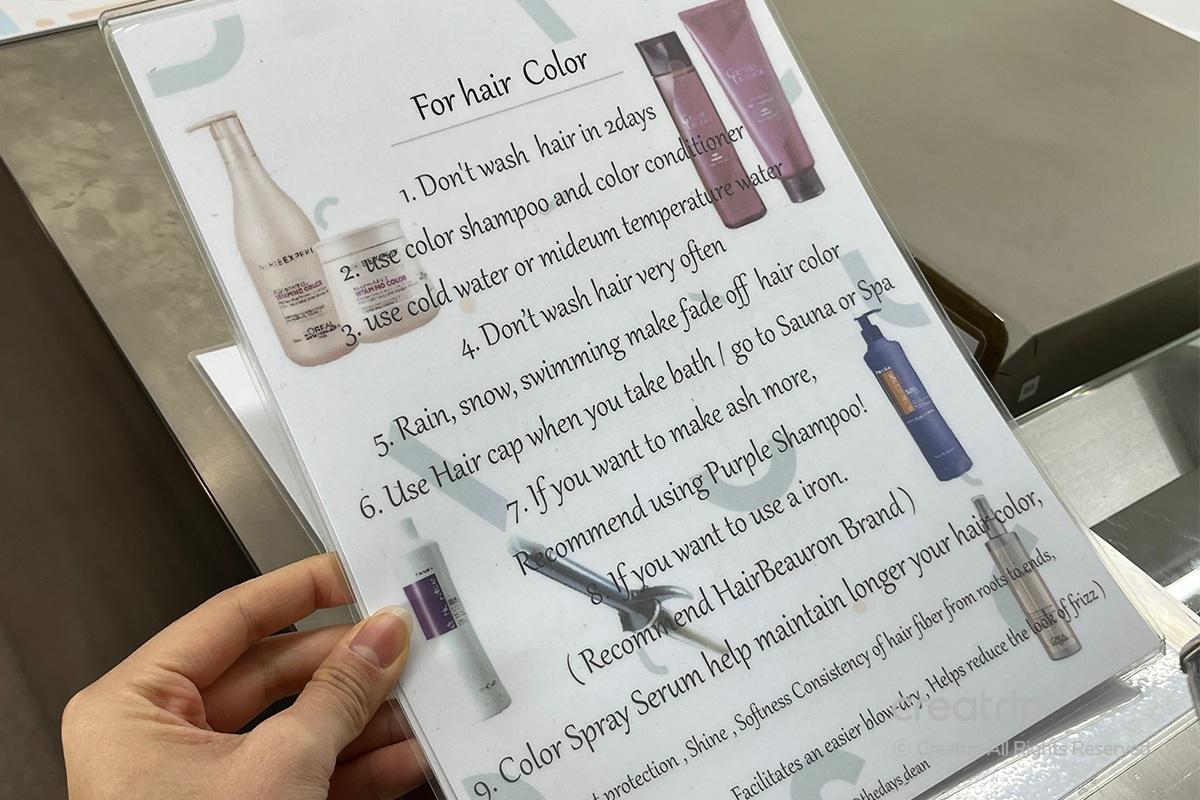 For hair Color
1. Don't wash hair in 2days
2. use color shampoo and color conditioner
3. use cold water or mideum temperature water
4. Don't wash hair very often
5. Rain, snow, swimming make fade off hair color
6. Use Hair cap when you take bath / go to Sauna or Spa
7. If you want to make ash more,
Recommend using Purple Shampoo!
8. If you want to use a iron.
( Recommend HairBeauron Brand )
9. Color Spray Serum help maintain longer your hair color,
protection , Shine , Softness Consistency of hair fiber from roots to ends,
Facilitates an easier blow-dry , Helps reduce the look of frizz )
@thedays_dean
VITAMINO COLOR
VITAMINO COLOR
creatrip
© Creatrip All Rights Reserved